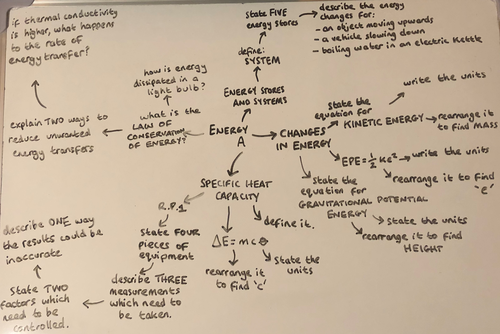 if thermal conductivity
is higher, what happens
to the rate of
energy transfer?
state FIVE
energy stores
describe the energy
changes for:
- an object moving upwards
- a vehicle slowing down
- boiling water in an electric kettle
define:
SYSTEM
how is energy
dissipated in a
light bulb?
ENERGY STORES
AND SYSTEMS
explain TWO ways to
reduce unwanted
energy transfers
what is the
LAW OF
CONSERVATION
OF ENERGY?
ENERGY
A
CHANGES
IN ENERGY
state the
equation for
KINETIC ENERGY
write the units
rearrange it
to find MASS
EPE=½Ke²
write the units
rearrange it to find
'e'
state the
equation for
GRAVITATIONAL POTENTIAL
ENERGY
state the units
rearrange it to find
HEIGHT
SPECIFIC HEAT
CAPACITY
define it.
ΔE = mcθ
state the
units
rearrange it
to find 'c'
R.P.1
state FOUR
pieces of
equipment
describe THREE
measurements
which need to
be taken.
state TWO
factors which
need to be
controlled.
describe ONE way
the results could be
inaccurate